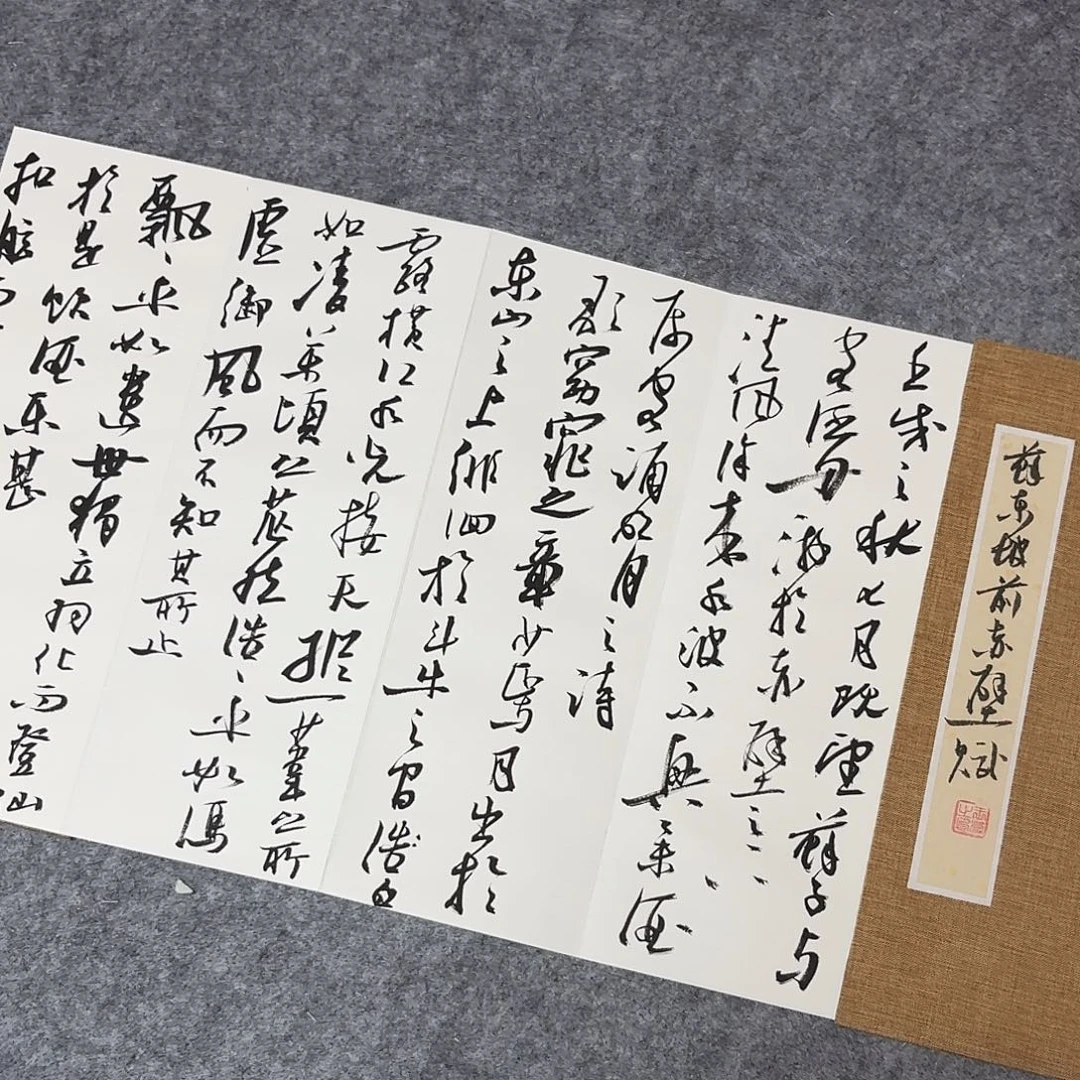 蘇東坡前赤壁賦
壬戌之秋七月既望蘇子与
客泛舟游於赤壁之下
清风徐来水波不興举酒
属客诵明月之诗
歌窈窕之章少焉月出於
东山之上徘徊於斗牛之间白
露横江水光接天纵一苇之所
如凌万顷之茫然浩〻乎如馮
虚御風而不知其所止
飘〻乎如遗世独立羽化而登仙
於是饮酒乐甚
扣舷而